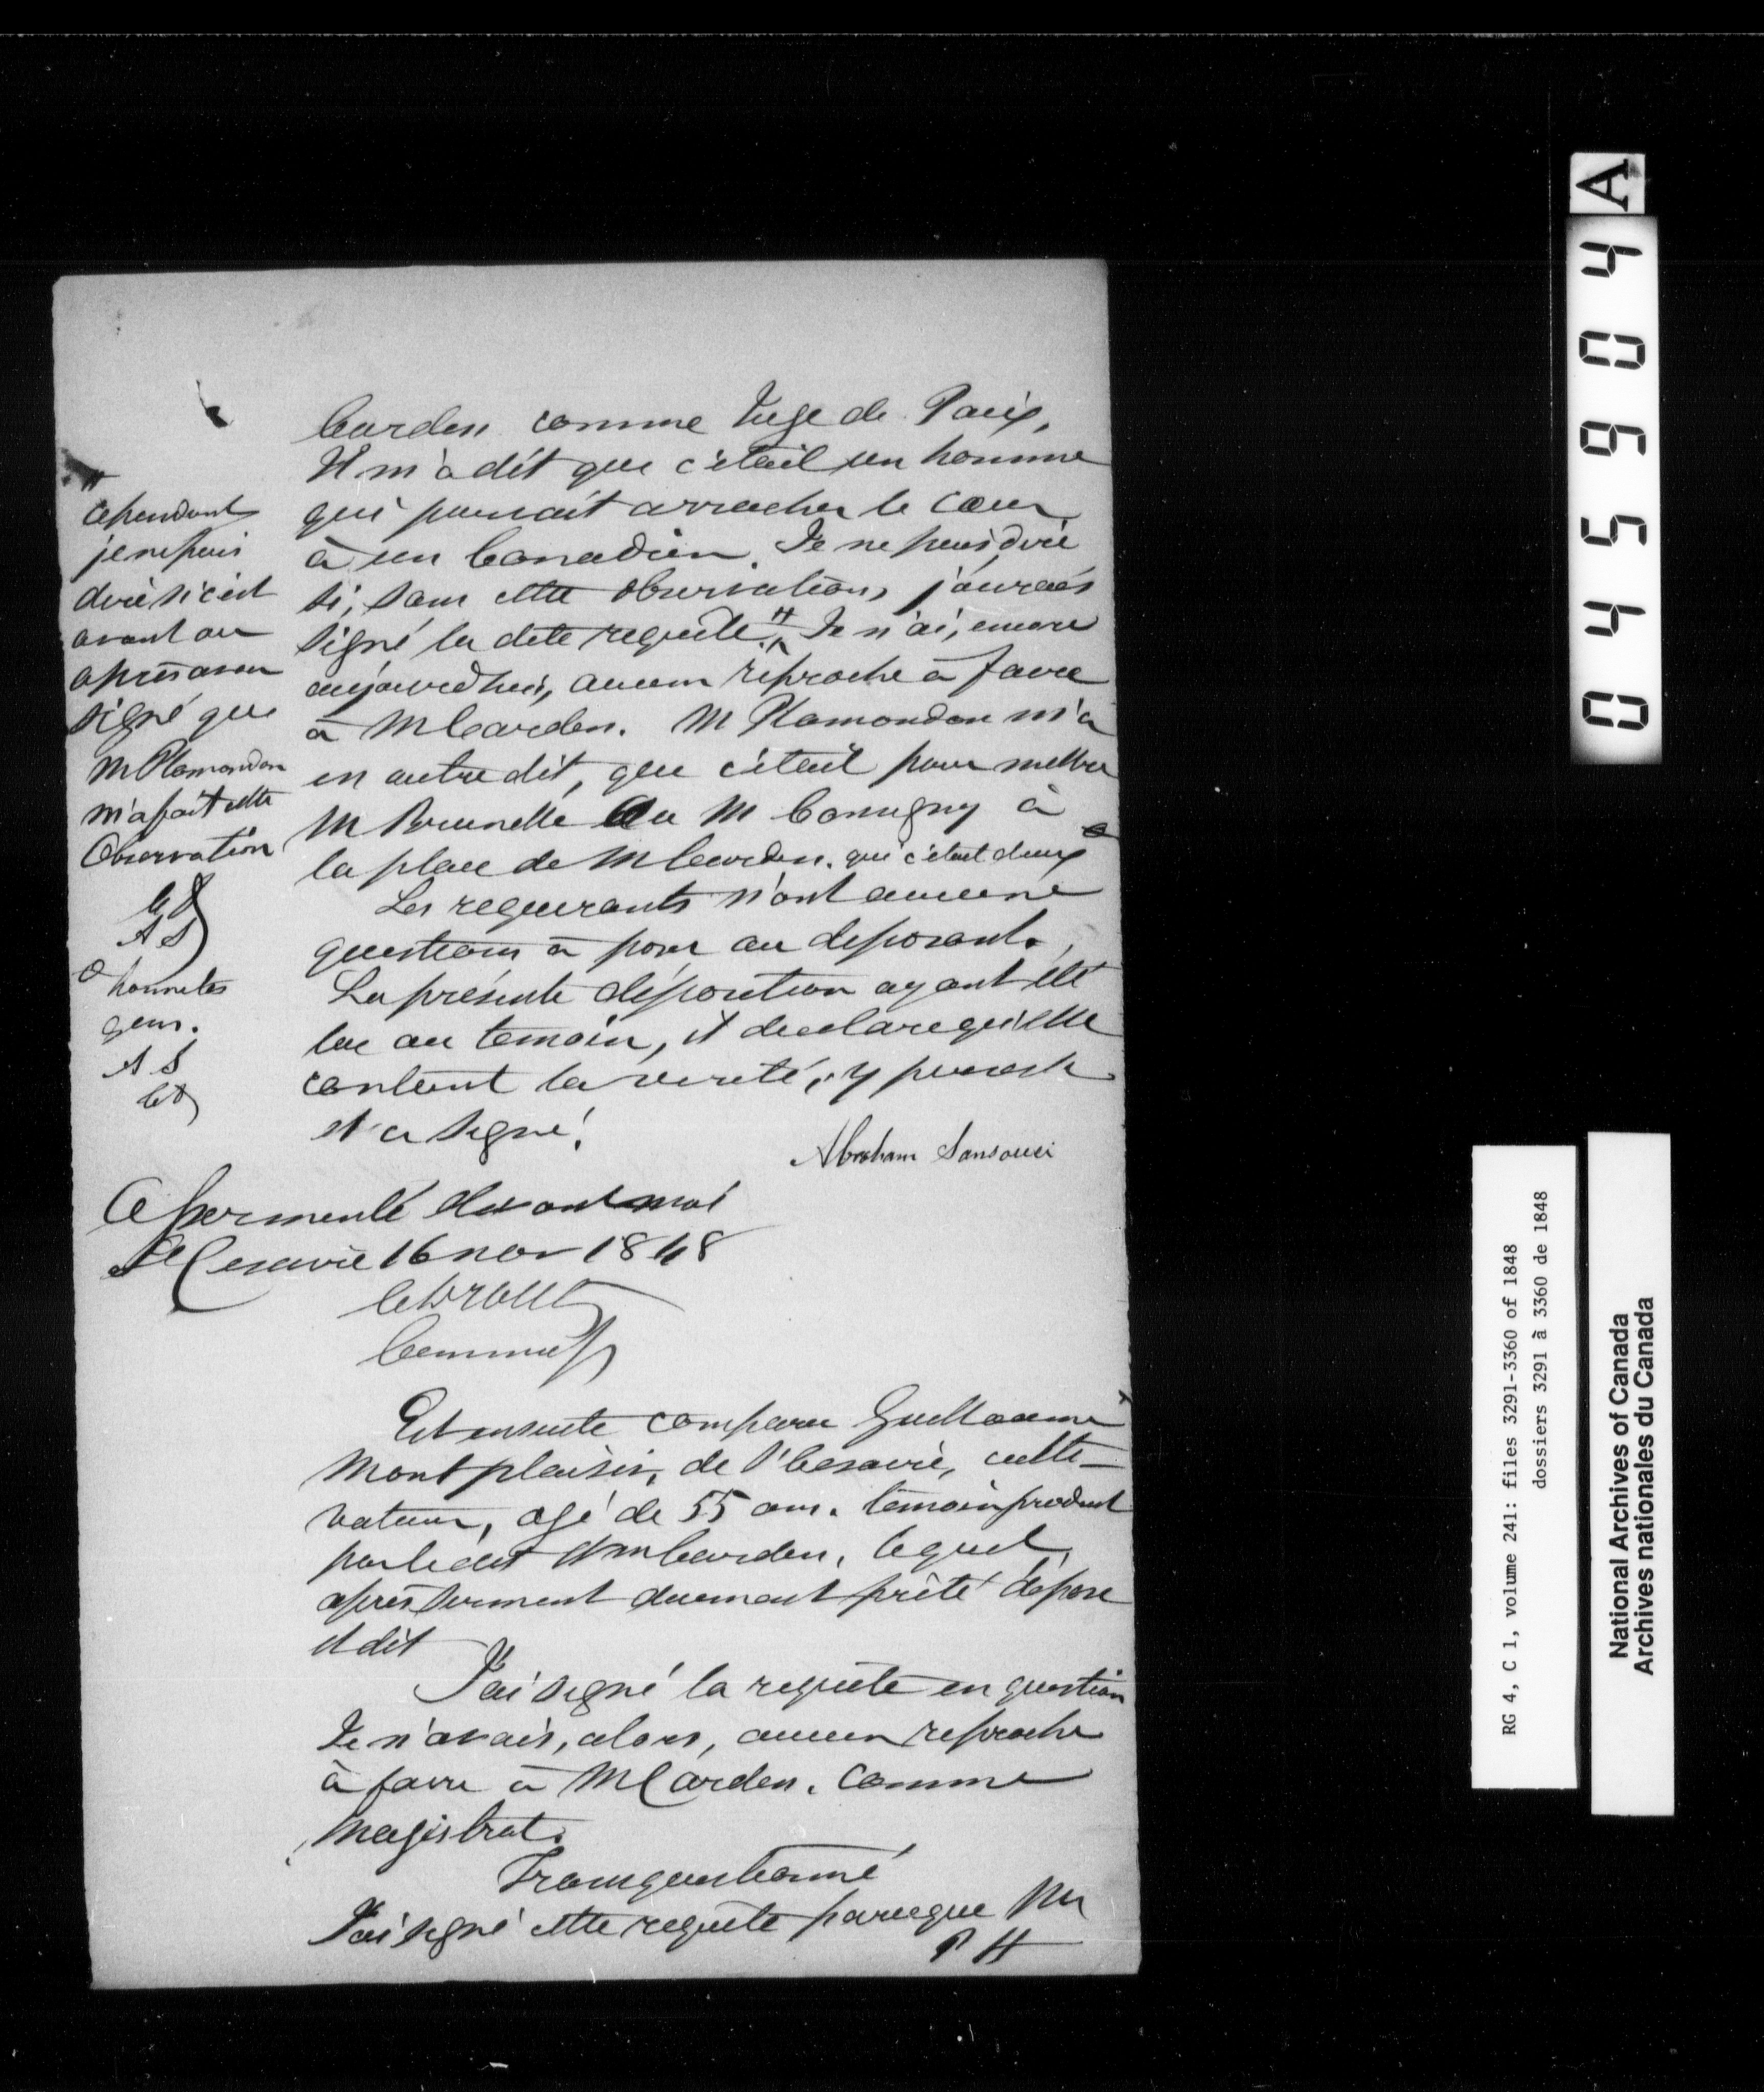 Carden comme Juge de Paix,
Il m'a dit que c'était un homme
qui pouvait arracher le coeur
à un Canadien. Je ne puis dire
si, sans cette observation, j'aurais
signé la dite requete # Je n'ai, encore
aujourdhui, aucun reproche à faire
à M Carden. M Plamondon m'a
en outre dit, que c'était pour mettre
M Brunelle Ou M Comugny à
la place de M Carden. qui c'étaient deux o
Les requerants n'ont aucune
question à poser au deposant.
La présente déposition ayant été
lue au temoin, il declare qu'elle
contient la verité, y persiste
et a signé.
Abraham Sansouci
#
cependant
je ne puis
dire si c'est
avant ou
après avoir
signé que
M Plamondon
m'a fait cette
Observation
A S
o honnetes
gens.
A S
Assermenté devant moi
St Cesaire 16 nov 1848
Commis
Et ensuite comparu Guillaume
Montplaisir, de St Cesaire, culti-
vateur, agé de 55 ans. temoin produit
par le dit Wm Carden, lequel,
après serment duement prêté dépose
et dit
J'ai signé la requête en question
Je n'avais, alors, aucun reproche
à faire à M Carden. comme
Magistrat.
Transquestionné
J'ai signé cette requête parceque Mr
P H
A
045904
RG 4, C 1, volume 241: files 3291-3360 of 1848
dossiers 3291 à 3360 de 1848
National Archives of Canada
Archives nationales du Canada